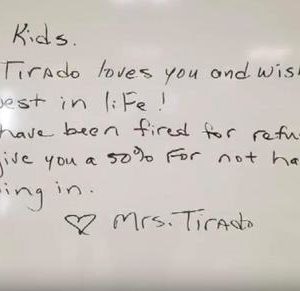 Kids.
Tirado loves you and wis
est in life!
have been fired for refu
give you a 50% for not ha
ing in.
♡ Mrs. Tirado